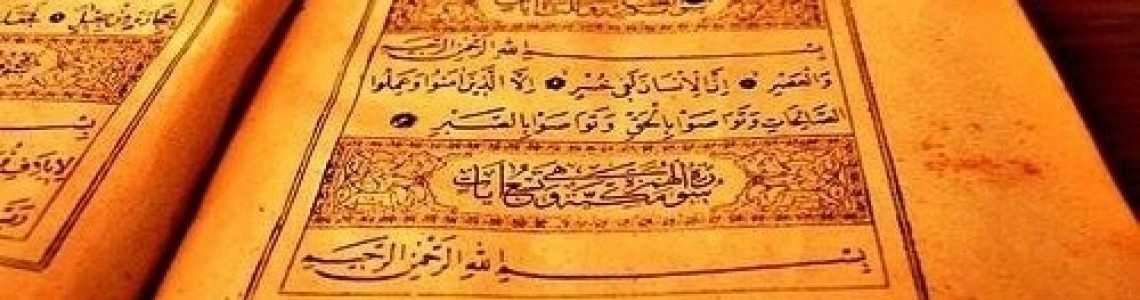 بِسْمِ اللهِ الرَّحْمٰنِ الرَّحِيمِ
وَالْعَصْرِ ۝ اِنَّ الْاِنْسَانَ لَفِي خُسْرٍ ۝ اِلَّا الَّذِينَ اٰمَنُوا وَعَمِلُوا
الصَّالِحَاتِ وَتَوَاصَوْا بِالْحَقِّ وَتَوَاصَوْا بِالصَّبْرِ ۝
سورة الهمزة مكية وهي تسع ايات
بِسْمِ اللهِ الرَّحْمٰنِ الرَّحِيمِ